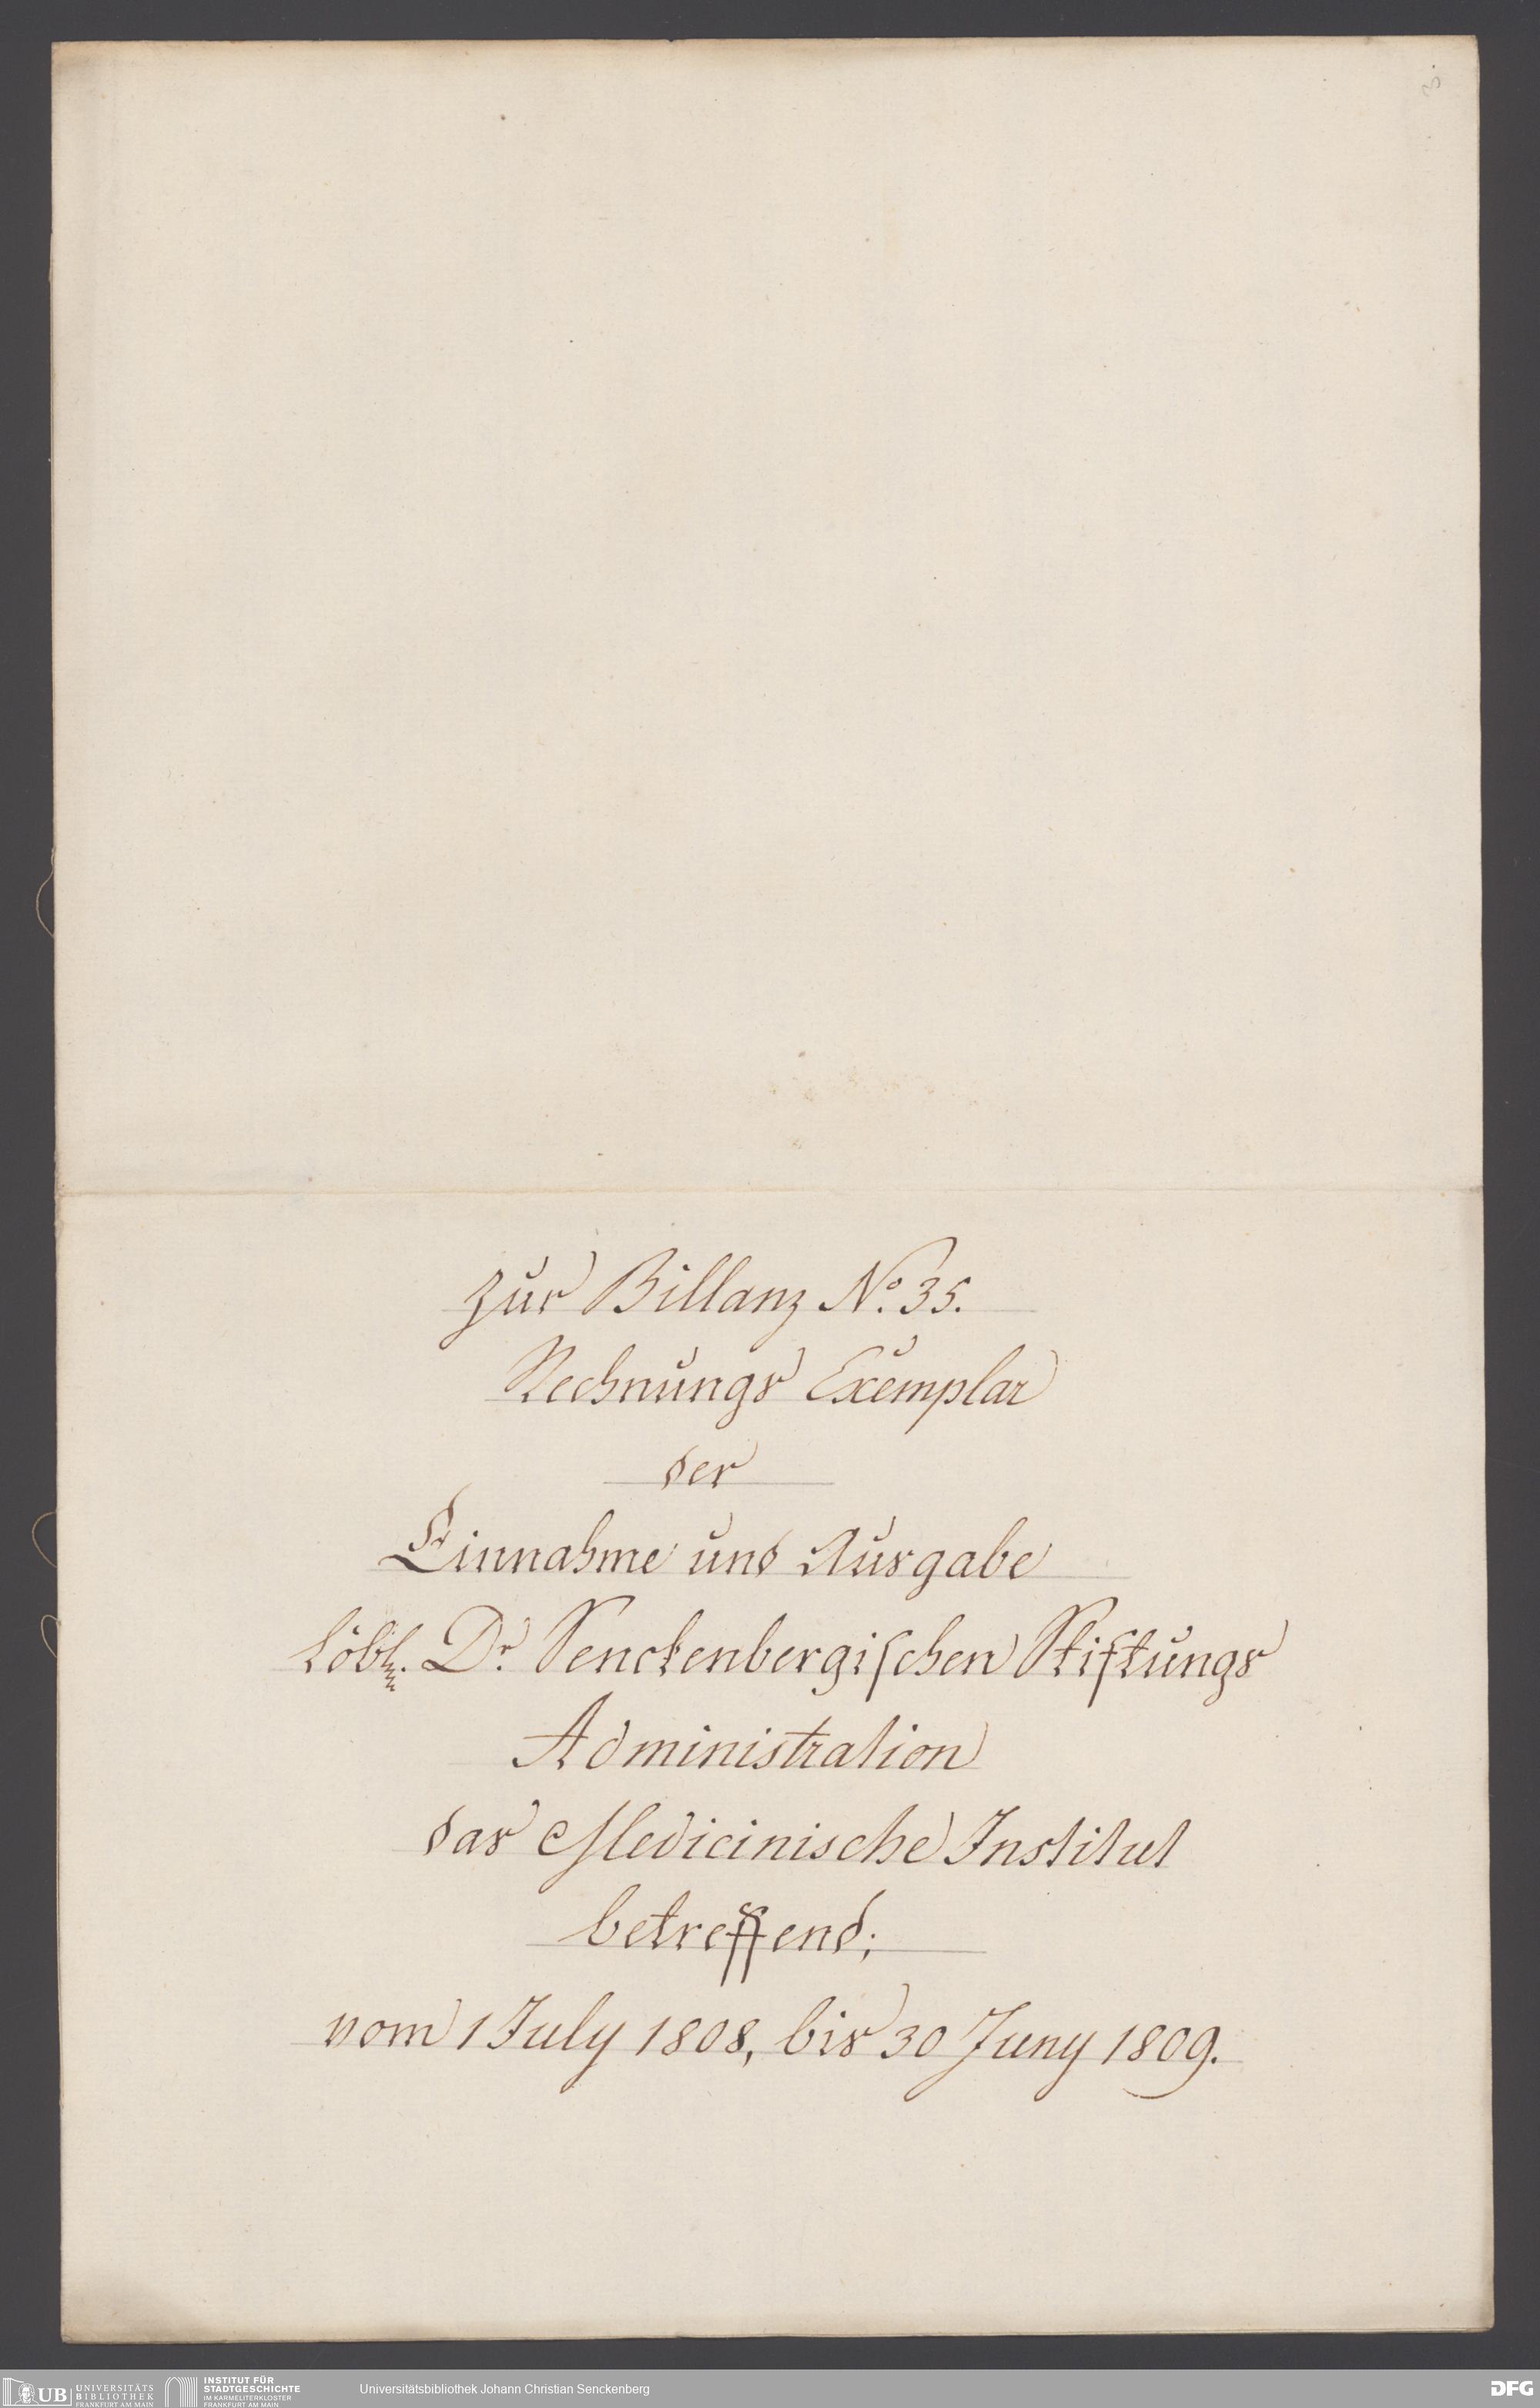 3.
zur Billanz No. 35.
Rechnungs Exemplar
der
Einnahme und Ausgabe
löbl. Dr. Senckenbergischen Stiftungs
Administration
das Medicinische Institut
betreffend;
vom 1 July 1808, bis 30 Juny 1809.
UB UNIVERSITÄTS
BIBLIOTHEK
FRANKFURT AM MAIN
INSTITUT FÜR
STADTGESCHICHTE
IM KARMELITERKLOSTER
FRANKFURT AM MAIN
Universitätsbibliothek Johann Christian Senckenberg
DFG